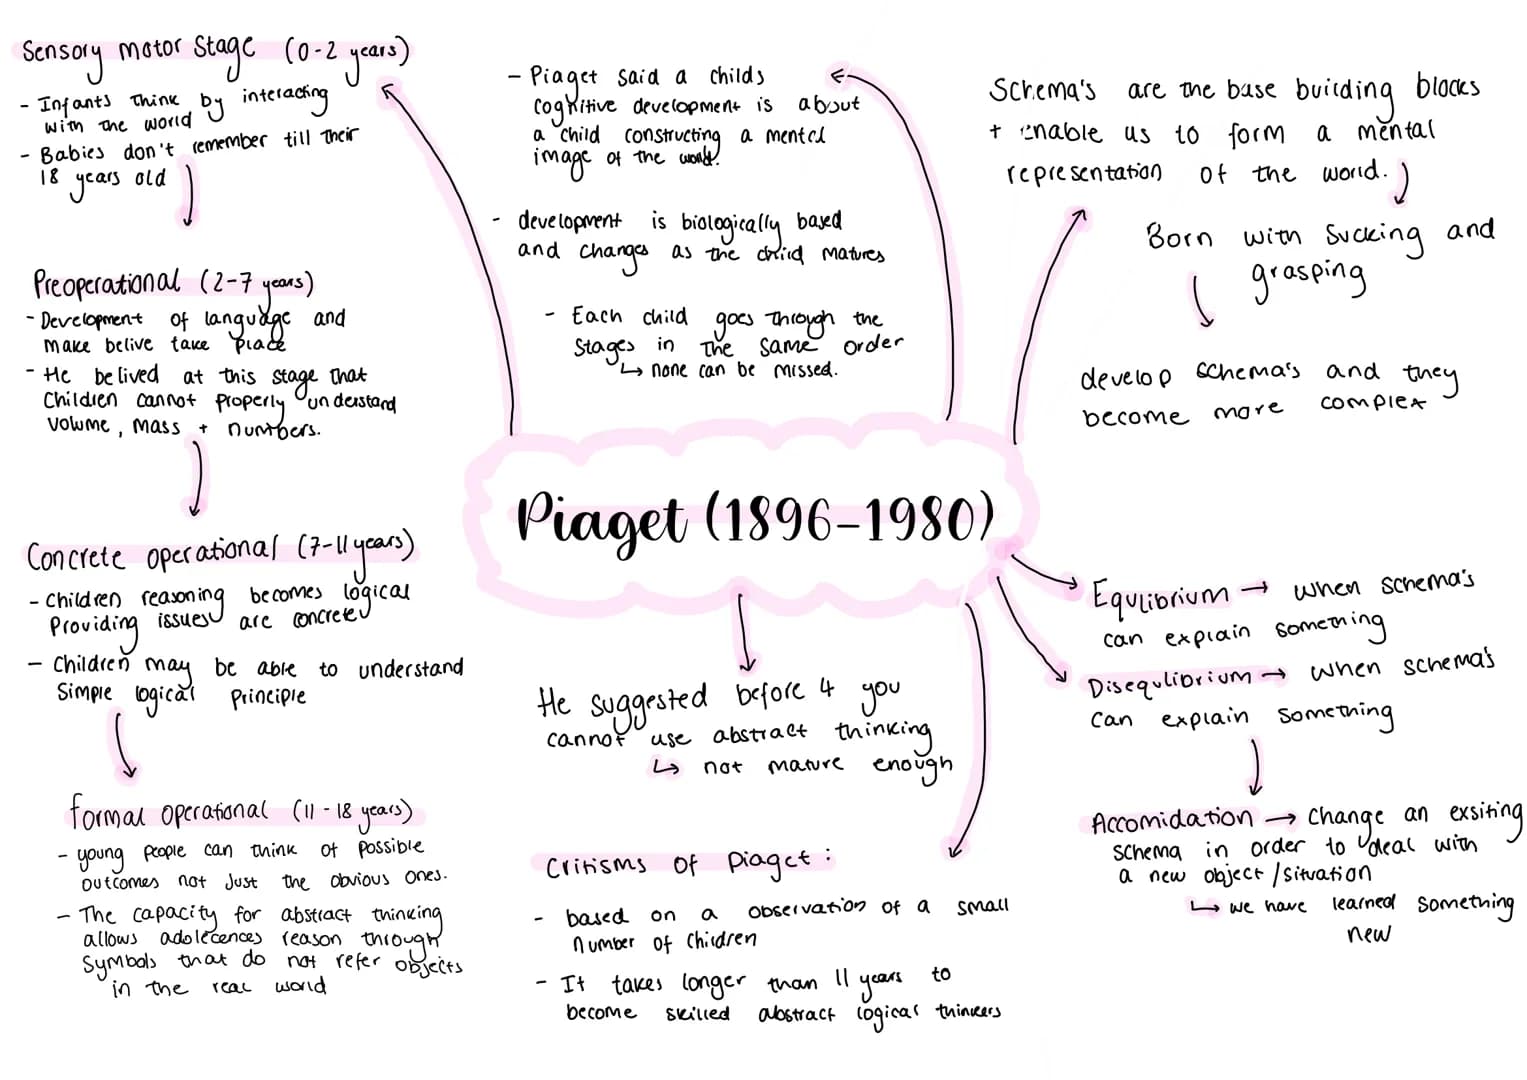 Sensory motor Stage (0-2 years)
- Infants think by interacting
with the world
- Babies don't remember till their
18 years old
Preoperational (2-7 years)
- Development of language and
make belive take place
- He belived at this stage that
Children cannot properly understand
volume, mass + numbers.
Concrete operational (7-11 years)
- Children reasoning becomes logical
Providing issues are concrete
- Children may be able to understand
Simple logical principle
formal operational (11-18 years)
- young people can think of possible
outcomes not just the obvious ones.
- The capacity for abstract thinking
allows adolecences reason through
symbols that do not refer objects
in the real world
- Piaget said a childs
cognitive development is about
a child constructing a mental
image of the world.
- development is biologically based
and changes as the child matures
- Each child goes through the
stages in the same order
↳ none can be missed.
Piaget (1896-1980)
He suggested before 4 you
cannot use abstract thinking
↳ not mature enough
Critisms of Piaget:
- based on a observation of a small
number of children
- It takes longer than 11 years to
become skilled abstract logical thinkers
Schema's are the base building blocks
+ enable us to form a mental
representation of the world.
Born with sucking and
grasping
develop schema's and they
become more complex
Equlibrium → when schema's
can explain something
Disequlibrium → when schema's
can explain something
Accomidation → Change an exsiting
schema in order to deal with
a new object/situation
↳ we have learned something
new